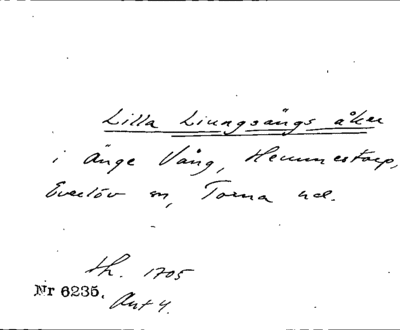 Lilla Liungsängs åker
i Änge Vång, Hemmestorp,
Everlöv sn, Torna hd.
Lh. 1705
Nr 6235. Akt 4.